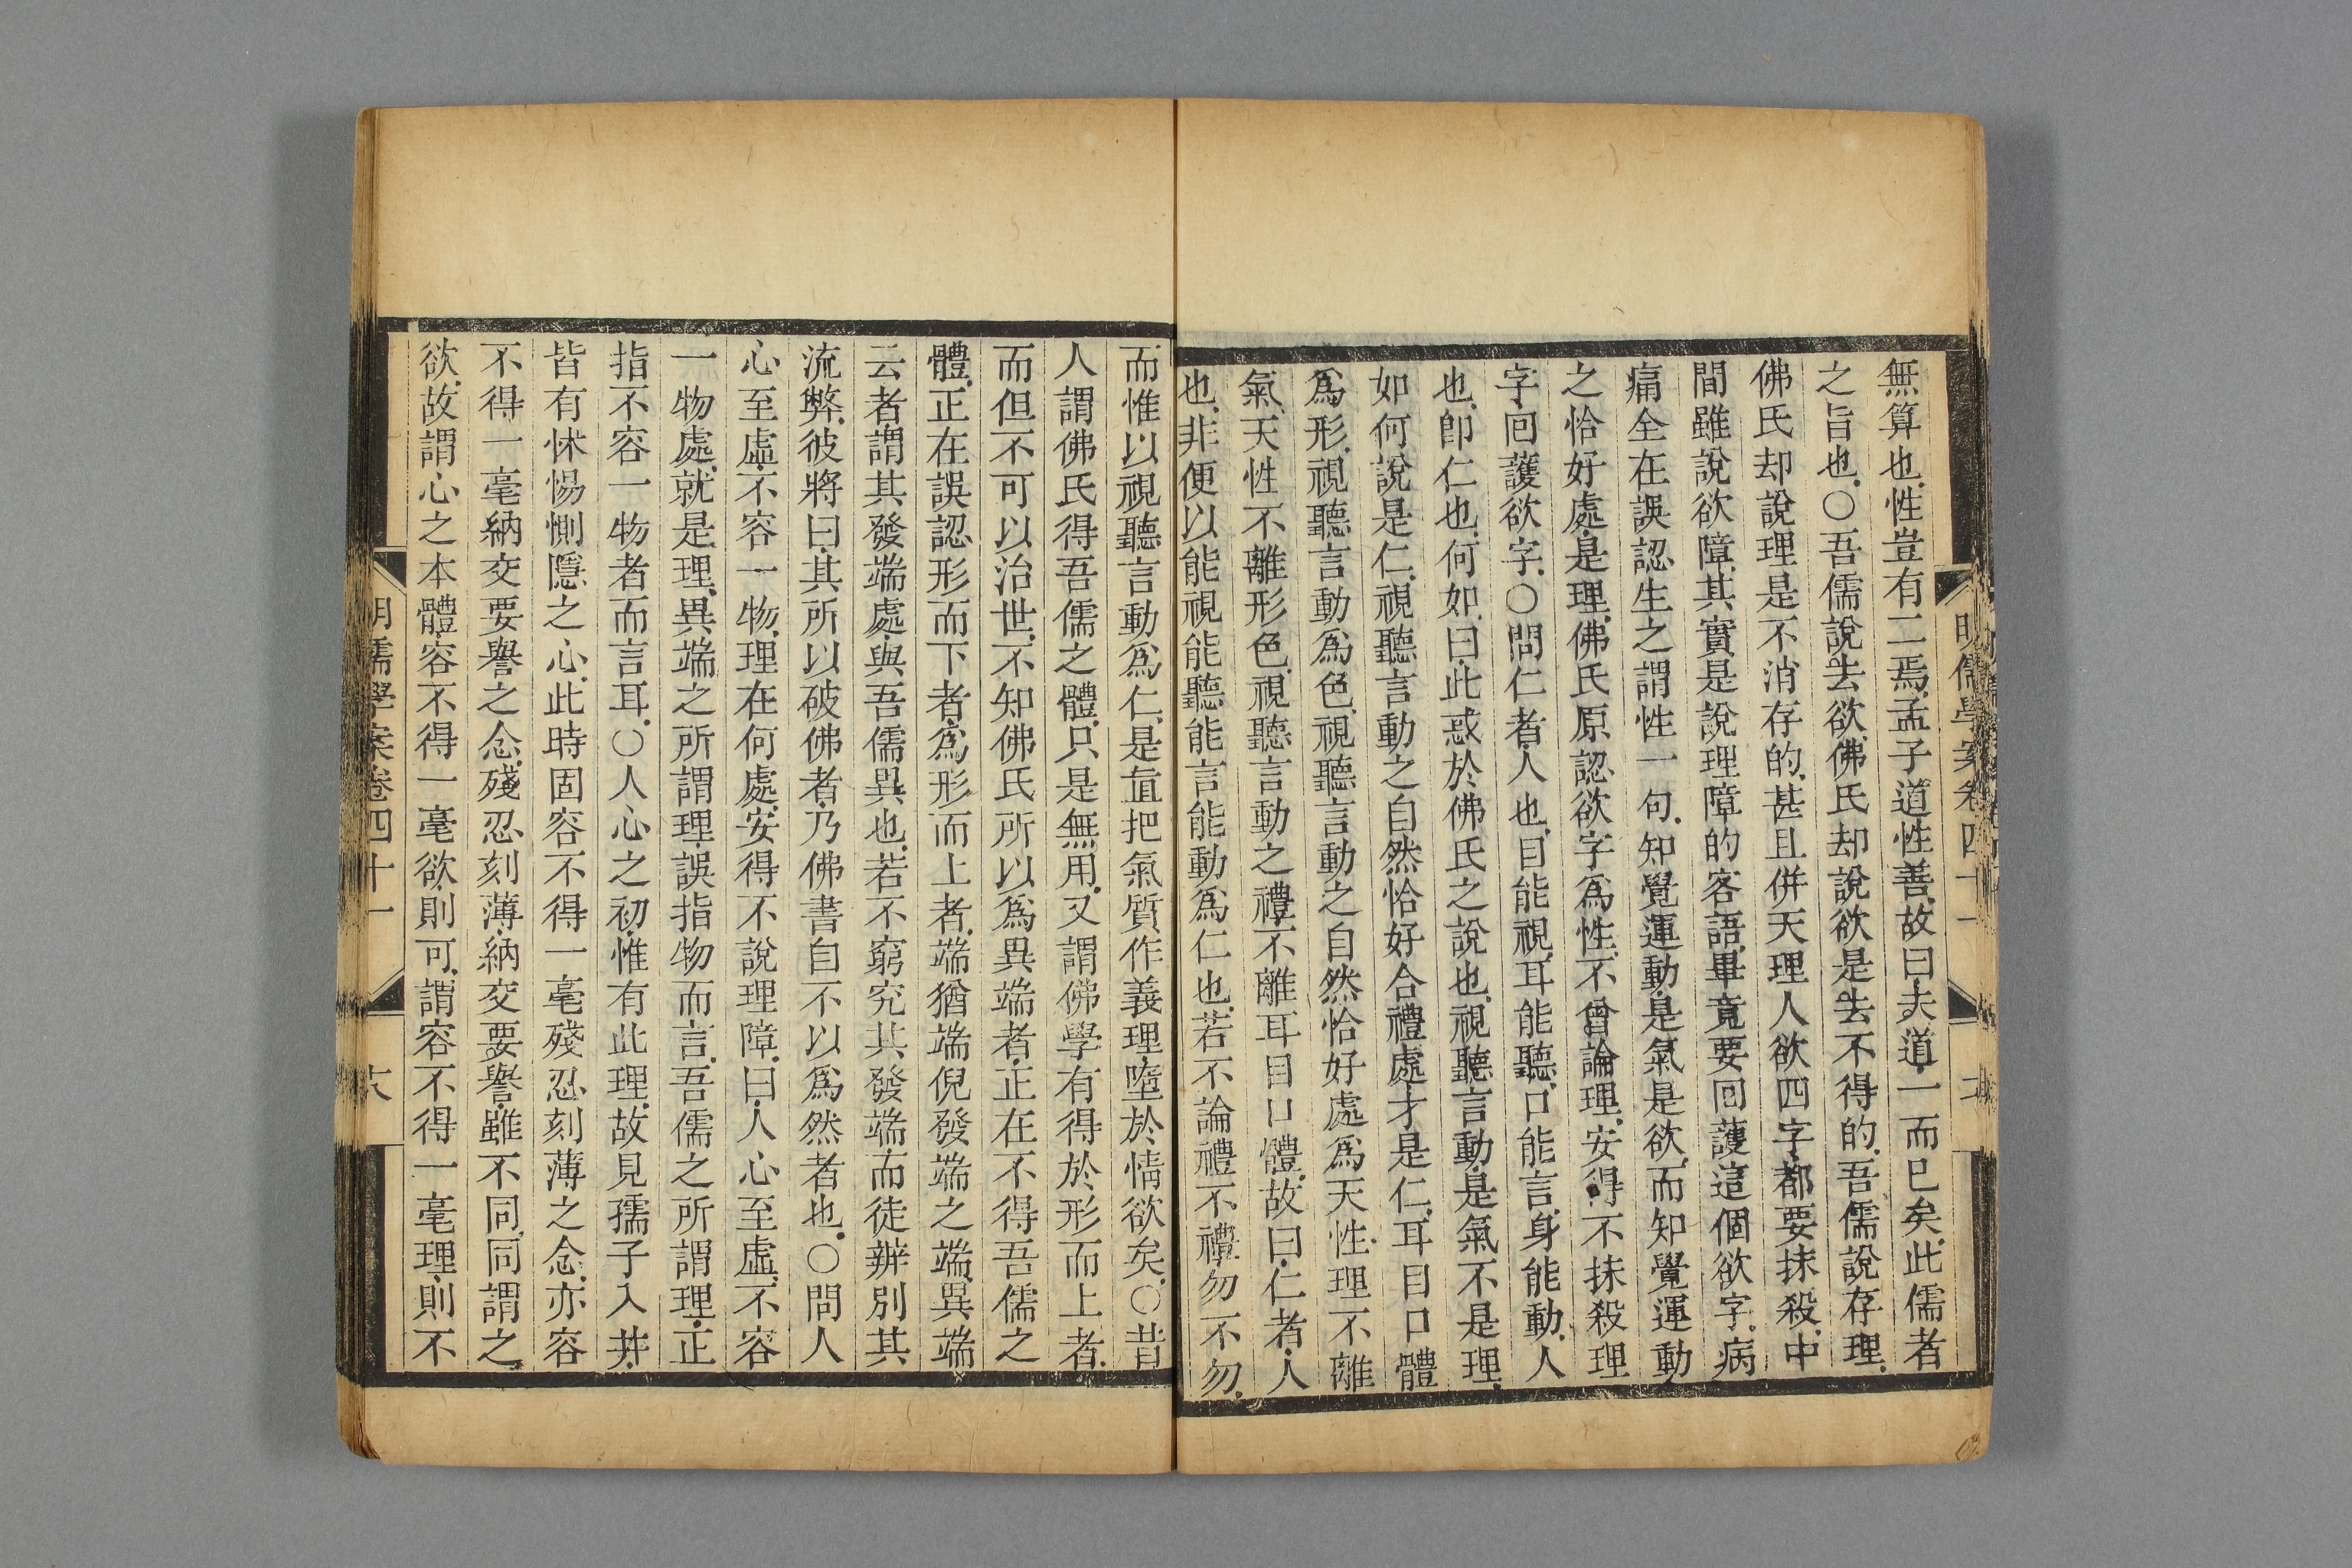 無算也性豈有二焉孟子道性善故曰夫道一而已矣此儒者
之旨也〇吾儒說去欲佛氏却說欲是去不得的吾儒說存理
佛氏却說理是不消存的甚且併天理人欲四字都要抹殺中
間雖說欲障其實是說理障的客語畢竟要回護這個欲字病
痛全在誤認生之謂性一句知覺運動是氣是欲而知覺運動
之恰好處是理佛氏原認欲字為性不曾論理安得不抹殺理
字回護欲字〇問仁者人也目能視耳能聽口能言身能動人
也卽仁也何如曰此惑於佛氏之說也視聽言動是氣不是理
如何說是仁視聽言動之自然恰好合禮處才是仁耳目口體
爲形視聽言動爲色視聽言動之自然恰好處爲天性理不離
氣天性不離形色視聽言動之禮不離耳目口體故曰仁者人
也非便以能視能聽能言能動爲仁也若不論禮不禮勿不勿
而惟以視聽言動爲仁是直把氣質作義理墮於情欲矣〇昔
人謂佛氏得吾儒之體只是無用又謂佛學有得於形而上者
而但不可以治世不知佛氏所以爲異端者正在不得吾儒之
體正在誤認形而下者爲形而上者端猶端倪發端之端異端
云者謂其發端處與吾儒異也若不窮究其發端而徒辨別其
流弊彼將曰其所以破佛者乃佛書自不以爲然者也〇問人
心至虛不容一物理在何處安得不說理障曰人心至虛不容
一物處就是理異端之所謂理誤指物而言吾儒之所謂理正
指不容一物者而言耳〇人心之初惟有此理故見孺子入井
皆有怵惕惻隱之心此時固容不得一毫殘忍刻薄之念亦容
不得一毫納交要譽之念殘忍刻薄納交要譽雖不同同謂之
欲故謂心之本體容不得一毫欲則可謂容不得一毫理則不
明儒學案卷四十一
明儒學案卷四十一
六